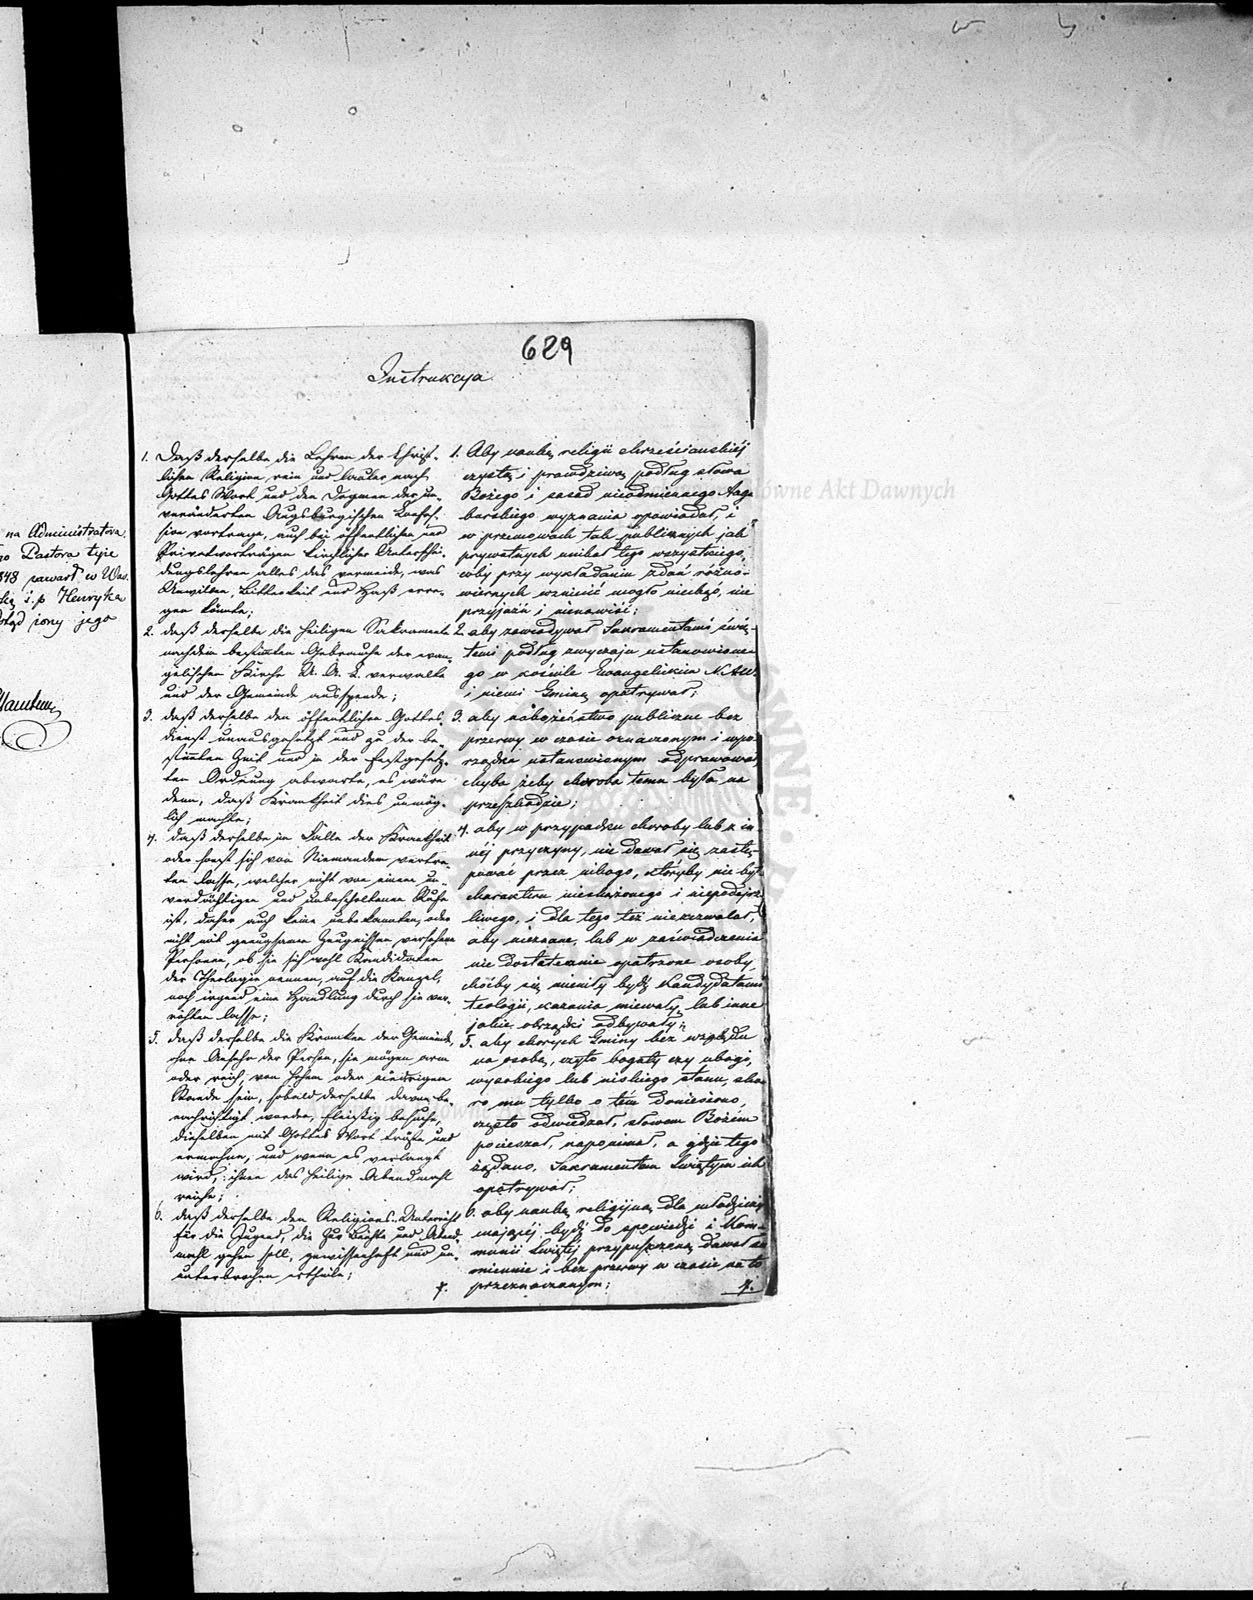 629
Instrukcya
na Administratora
Pastora tejie
1848 zawarł w War.
ś. p. Henryka
żony jego
1. Daß derselbe die Lehren der Christ-
lichen Religion rein und lauter nach
Gottes Wort und den Dogmen der un-
veränderten Augsburgischen Confes-
sion vortrage, auch bei öffentlichen und
Privatvorträgen kirchlicher Unterschei-
dungslehren alles das vermeide, was
Unwillen, Bitterkeit und Haß erre-
gen könnte;
2. daß derselbe die heiligen Sakramente
nach dem bestimten Gebrauche der evan-
gelischen Kirche U. A. C. verwalte
und der Gemeinde ausspende;
3. daß derselbe den öffentlichen Gottes-
dienst unausgesetzt und zu der be-
stimten Zeit und in der festgesetz-
ten Ordnung abwarte, es wäre
denn, daß Krankheit dies unmög-
lich machte;
4. daß derselbe im Falle der Krankheit
oder sonst sich von Niemandem vertre-
ten lasse, welcher nicht von einem un-
verdächtigen und unbescholtenen Rufe
ist, daher auch keine unbekannten, oder
nicht mit genugsamen Zeugnissen versehene
Personen, ob sie sich wohl Kandidaten
der Theologie nennen, auf die Kanzel,
noch irgend eine Handlung durch sie ver-
richten lasse;
5. daß derselbe die Kranken der Gemeinde,
ohne Ansehn der Person, sie mögen arm
oder reich, von hohem oder niedrigen
Stande sein, sobald derselbe davon be-
nachrichtigt worden, fleißig besuche,
dieselben mit Gottes Wort tröste und
ermahne, und wenn es verlangt
wird, ihnen das heilige Abendmahl
reiche;
6. daß derselbe den Religions-Unterricht
für die Jugend, die zur Beichte und Abend-
mahl gehen soll, gewissenhaft und un-
unterbrochen ertheile;
7.
1. Aby naukę religii chrześcianskiéj
czystą i prawdziwą podług słowa
Bożego i zasad nieodmiennego Augs
burskiego wyznania opowiadał, i
w przemowach tak publicznych jak
prywatnych unikał tego wszystkiego,
coby przy wykładaniu zdań różno-
wiernych wzniecić mogło niechęć, nie
przyjaźń i nienawiść;
2. aby zawiadywał Sakramentami świę-
temi podług zwyczaju ustanowione-
go w kościele Ewangelickim N.A.W.
i niemi Gminę opatrywał;
3. aby nabożeństwo publiczne bez
przerwy w czasie oznaczonym i wpo-
rządku ustanowionym odprawował,
chyba żeby choroba temu była na
przeszkodzie;
4. aby w przypadku choroby lub z in-
néj przyczyny, nie dawał się zastę-
pować przez nikogo, któryby nie był
charakteru nieskażonego i niepodejrz-
liwego, i dla tego też niezezwalał,
aby nieznane, lub w zaświadczenia
nie dostatecznie opatrzone osoby,
choćby się mieniły bydź Kandydatami
teologii, kazania miewały lub inne
jakie obrządki odbywały;
5. aby chorych Gminy bez względu
na osobę, czyto bogatę czy ubogi,
wysokiego lub niskiego stanu, sko-
ro mu tylko o tém doniesiono,
często odwiedzał, słowem Bożém
pocieszał, napominał, a gdzie tego
żądano, Sakramentem Świętym ich
opatrywał;
6. aby naukę religijną dla młodzieży
mającéj bydź do spowiedzi i Kom-
munii Świętéj przypuszczoną dawał su
miennie i bez przerwy w czasie na to
przeznaczonym;
7.
Główne Akt Dawnych